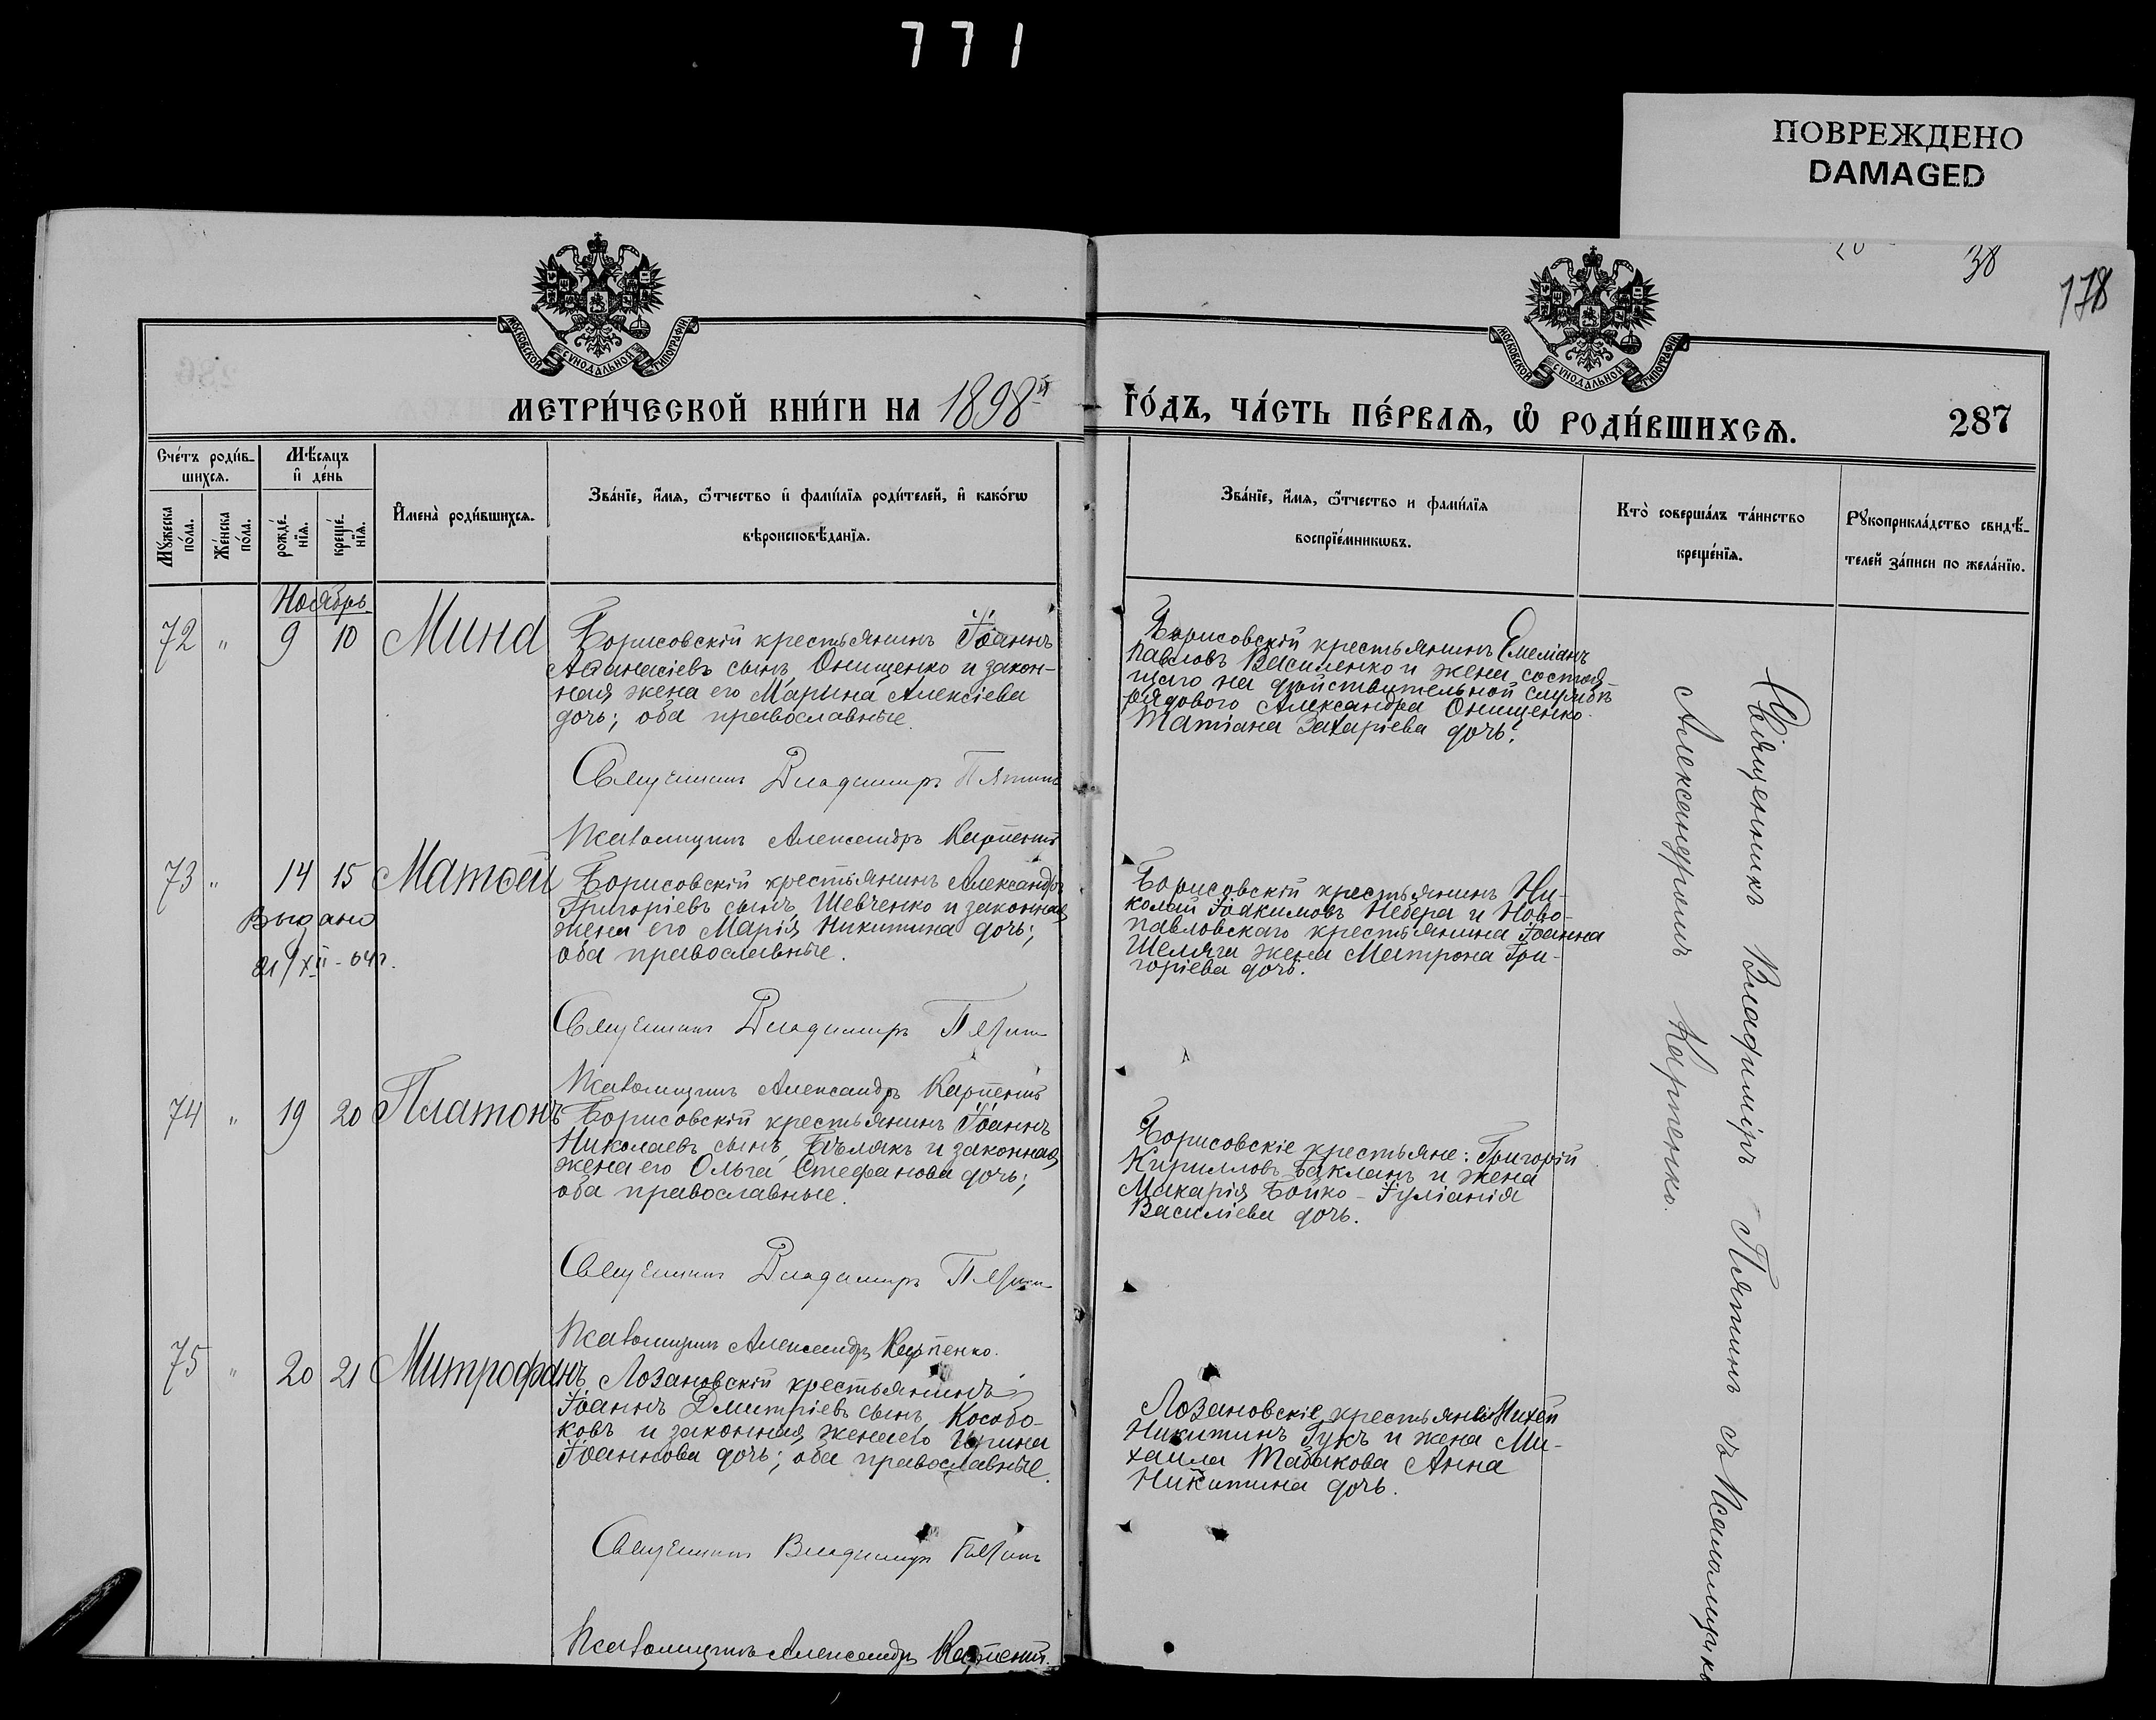 771
ПОВРЕЖДЕНО
DAMAGED
38
178
МОСКОВСКОЙ СѴНОДАЛЬНОЙ ТИПОГРАФІИ
МОСКОВСКОЙ СѴНОДАЛЬНОЙ ТИПОГРАФІИ
МЕТРИ́ЧЕСКОЙ КНИ́ГИ НА 1898й
ГО́ДЪ, ЧА́СТЬ ПЕ́РВАѦ, Ѿ РОДИ́ВШИХСѦ.
287
Сче́тъ роди́в-
шихсѧ.
Мꙋ́жеска по́ла.
Же́нска по́ла.
Мѣ́сѧцъ
и҆ де́нь
рожде́-
нїѧ.
креще́-
нїѧ.
И҆мена̀ роди́вшихсѧ.
Зва́нїе, и҆́мѧ, ѻ҆́тчество и҆ фами́лїѧ роди́телей, и҆ како́гѡ
вѣроисповѣ́данїѧ.
Зва́нїе, и҆́мѧ, ѻ҆́тчество и фами́лїѧ
воспрїе́мникѡвъ.
Кто̀ соверша́лъ та́инство
креще́нїѧ.
Рꙋкоприкла́дство свидѣ́-
телей за́писи по жела́нїю.
Ноябрь
72 " 9 10 Мина
Борисовскій крестьянинъ Іоаннъ
Аѳанасіевъ сынъ Онищенко и закон-
ная жена его Марина Алексіева
дочь; оба православные.
Священникъ Владимиръ Пятинъ
Псаломщикъ Александръ Карпенко
Борисовскій крестьянинъ Емеліанъ
Павловъ Василенко и жена состоя-
щаго на дѣйствительной службѣ
рядового Александра Онищенко
Татіана Захаріева дочь.
73 " 14 15 Матѳей
Выдано
21/XII-04г.
Борисовскій крестьянинъ Александръ
Григоріевъ сынъ Шевченко и законная
жена его Марія Никитина дочь;
оба православные.
Священникъ Владимиръ Пятин
Псаломщикъ Александръ Карпенко
Борисовскій крестьянинъ Ни-
колай Іоакимовъ Небера и Ново-
павловскаго крестьянина Іоанна
Шеляга жена Матрона Гри-
горіева дочь.
74 " 19 20 Платонъ
Борисовскій крестьянинъ Іоаннъ
Николаевъ сынъ Бѣлякъ и законная
жена его Ольга Стефанова дочь;
оба православные.
Священникъ Владимиръ Пятин
Псаломщикъ Александръ Карпенко.
Борисовскіе крестьяне: Григорій
Кирилловъ Бакланъ и жена
Макарія Бойко - Іуліанія
Василіева дочь.
75 " 20 21 Митрофанъ
Лозановскій крестьянинъ
Іоаннъ Дмитріевъ сынъ Кособо-
ковъ и законная жена его Ирина
Іоаннова дочь; оба православные.
Священникъ Владимиръ Пятинъ
Псаломщикъ Александръ Карпенко.
Лозановскіе крестьяне Михей
Никитинъ Гукъ и жена Ми-
хаила Табакова Анна
Никитина дочь.
Священникъ Владиміръ Пятинъ съ Псаломщикомъ
Александромъ Карпенко.